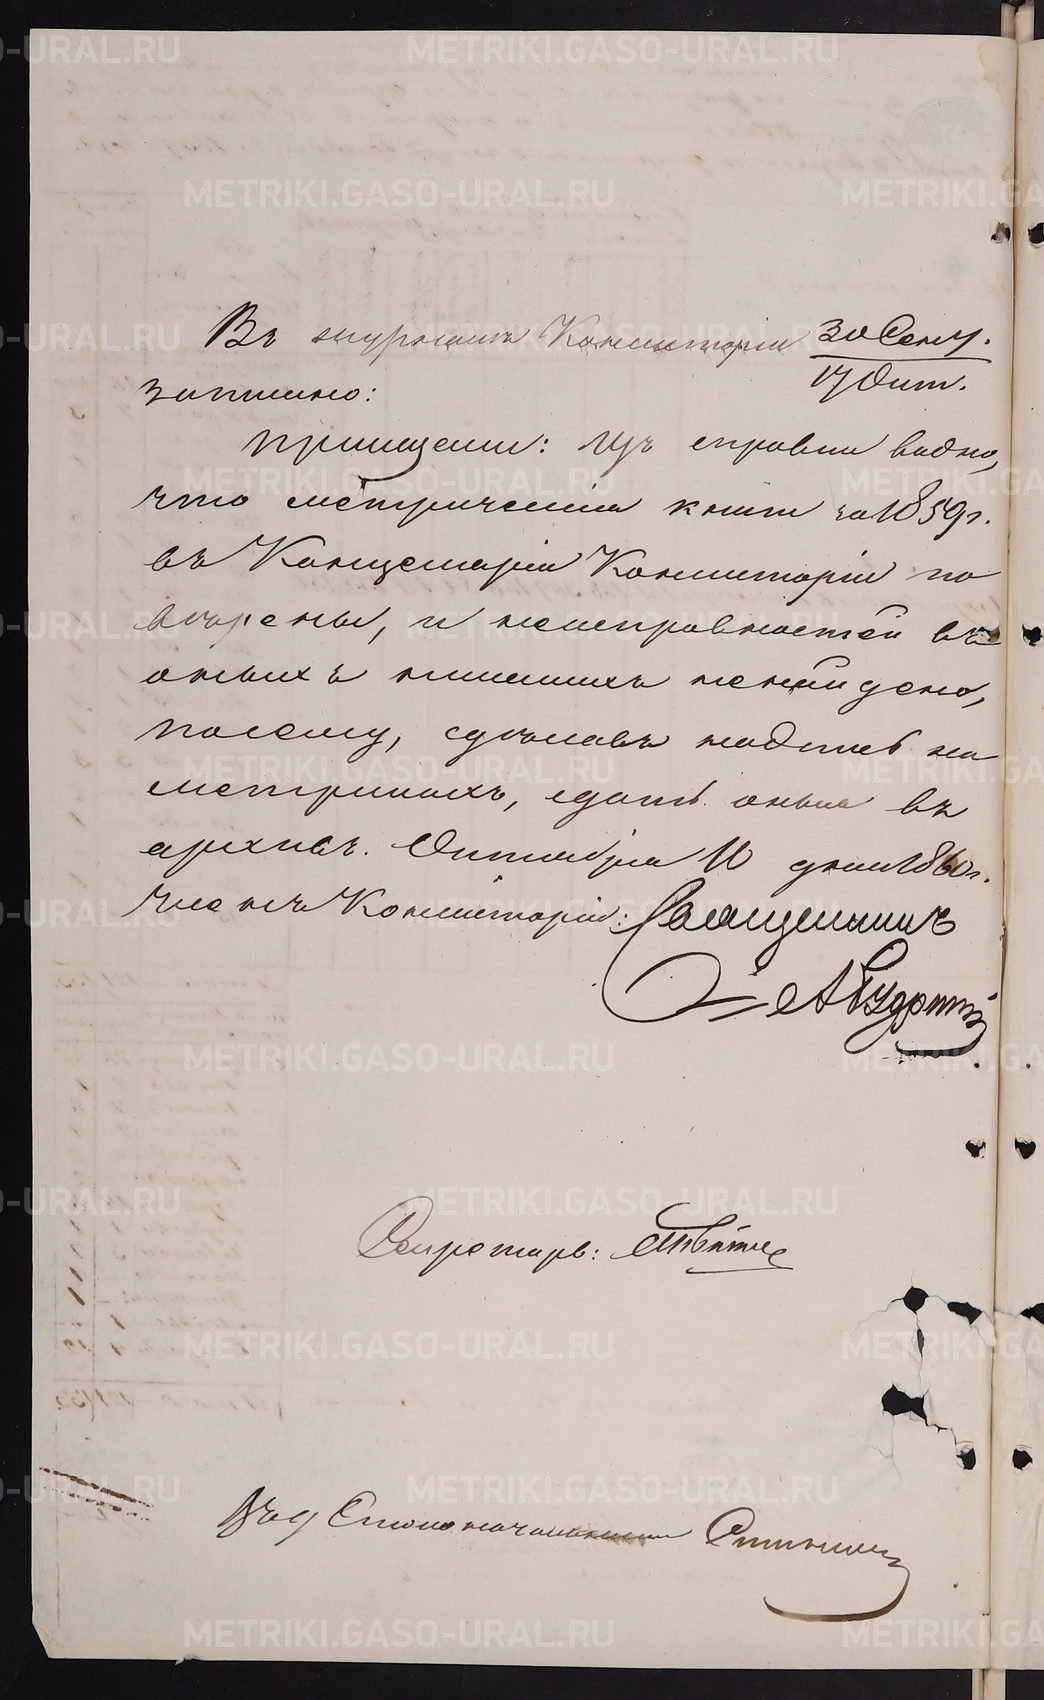 Въ журналѣ Консисторіи 30 Сент.
17 Окт.
записано:
Приказали: Изъ справки видно,
что метрическія книги за 1859 г.
въ Канцеляріи Консисторіи по
вѣрены, и неисправностей въ
оныхъ книгахъ ненайдено,
посему, сдѣлавъ надпись на
метрикахъ, сдать оныя въ
архивъ. Октября 10 дня 1860 г.
Членъ Консисторіи: Священникъ
Секретарь:
Столоначальника
METRIKI.GASO-URAL.RU